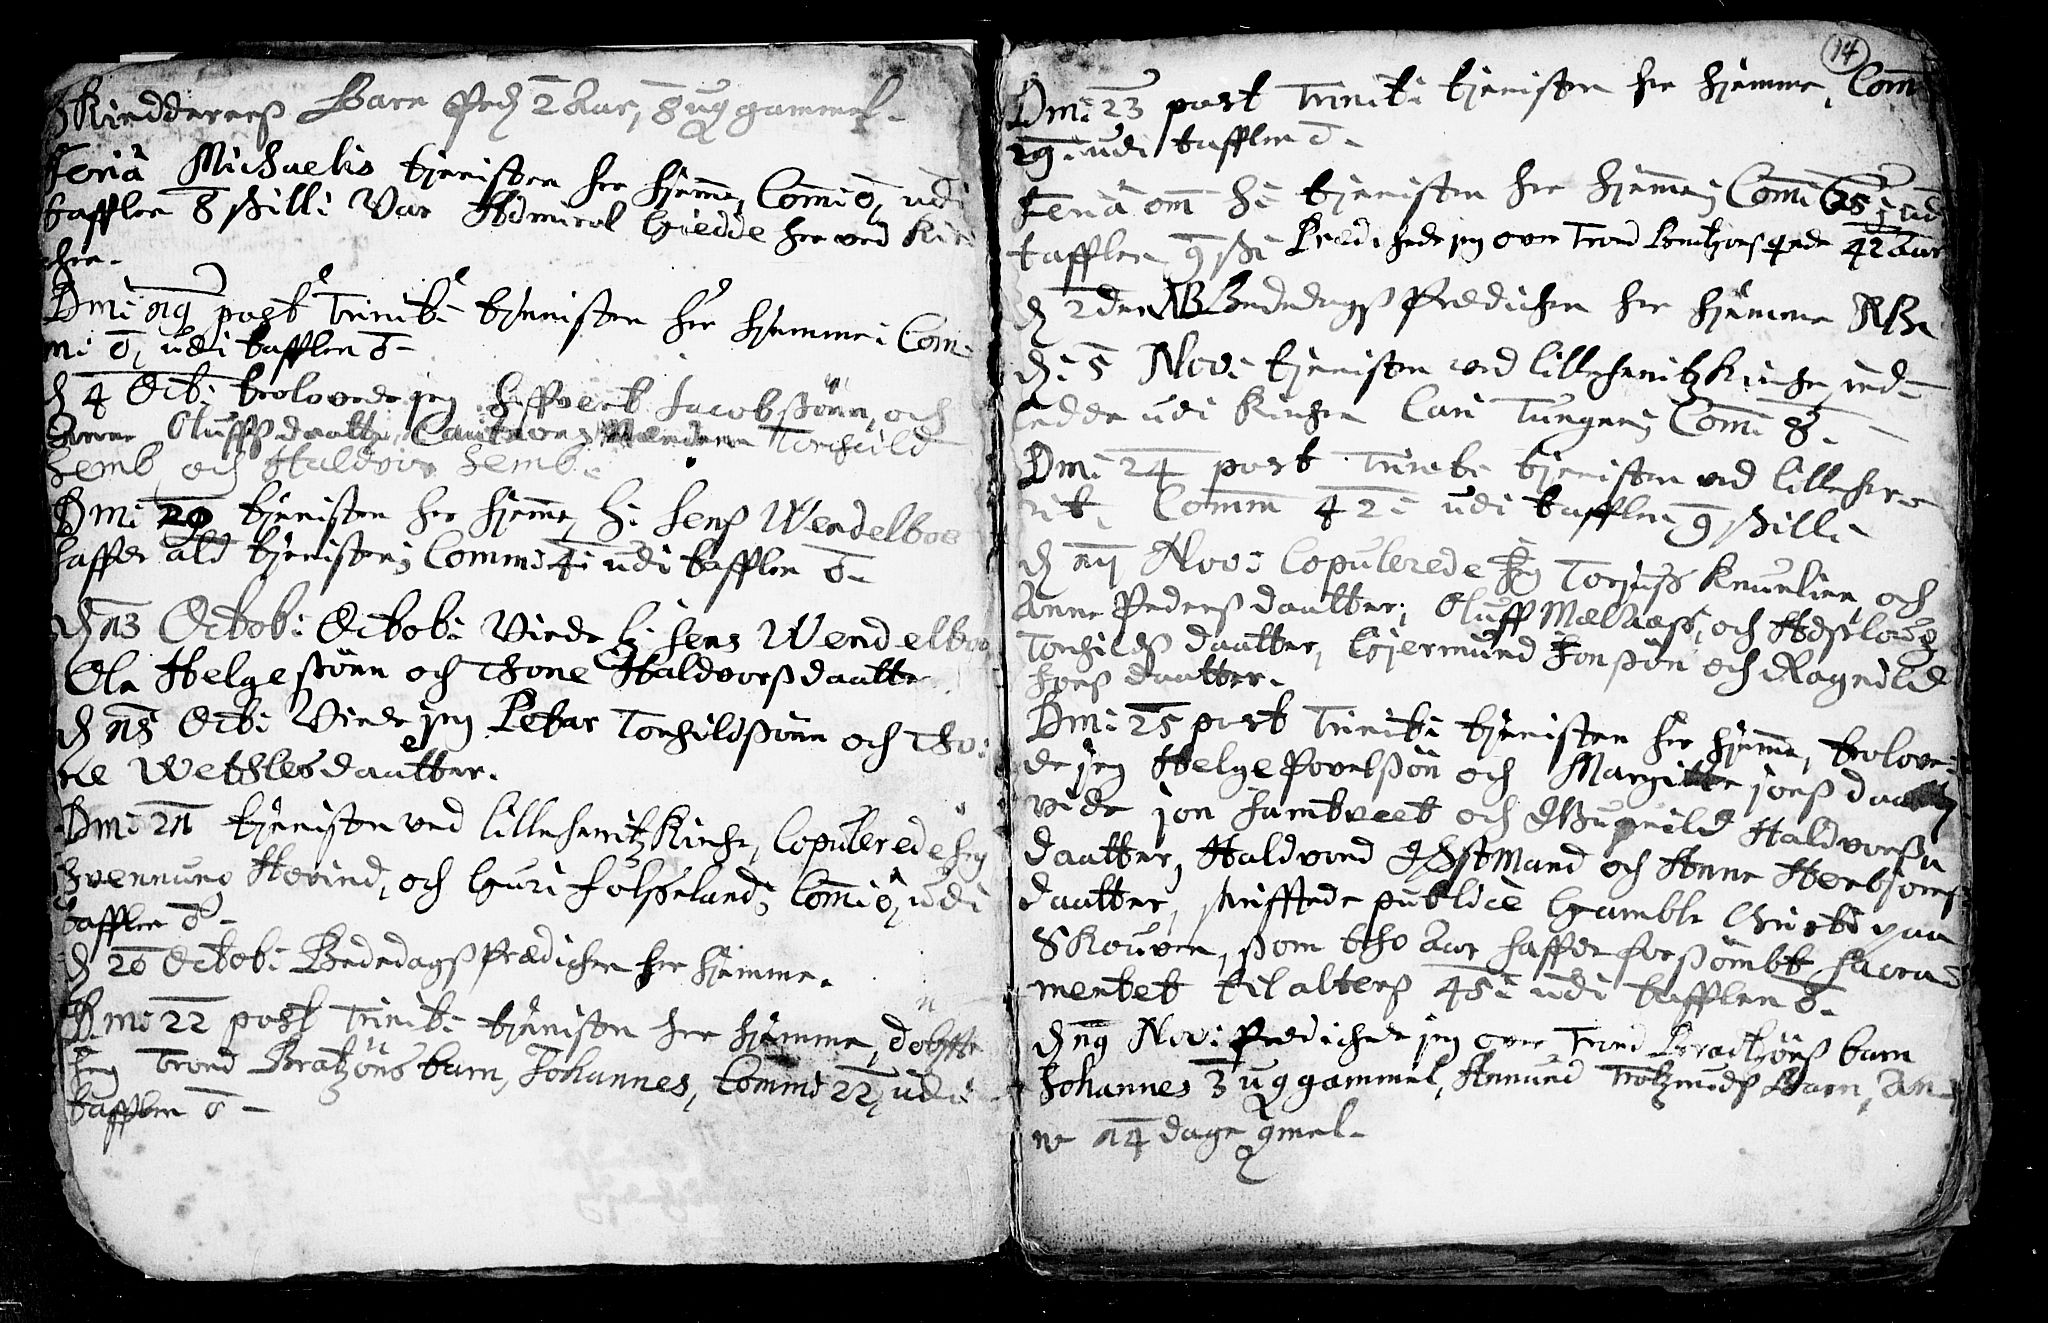 Skredderens Barn Peder 2 Aar, 8 ug gammel.
Feria Michaelis tienisten her hjemme, Commi 0, udi
tafflen 8 skilli Var Admiral Giedde her ved Kir
chen.
Dmi 19 post Trinit: tienisten her hjemme: Com
mi 0, udi tafflen 0
d 4 Octb: trolovede jeg Saffvert Jacobssönn, och
Anne Oluffs daatter, Torchild
Semb och Haldvor Semb.
Dmi 20 tienisten her hjemme, H: Jens Wendelboe
haffde ald tienisten, Commi 4 udi tafflen 0
d 13 Octob: Octob: Viede H: Jens Wendelboe
Ole Helgessönn och Thone Haldvorsdaatter
d 18 Octb: Viede jeg Peter Torchildssönn och Tho:
ne Wethlesdaatter.
Dmi 21 tienisten ved lilleherritz Kirche, Copulerede jeg
Svennung Hovind, och Guri Folseland, Commi 0, udi
tafflen 0
d 20 Octob: Bededags Prædichen her hjemme.
Dmi 22 post Trinit: tienisten her hjemme, döbte
jeg Trond Bratzöns barn, Johannes, Commi 22, udi
tafflen 0
14
Dmi 23 post Trinit: tienisten her hjemme, Com
29 udi tafflen 0
Feria om H: tienisten her hjemme, Commi 25 udi
tafflen 9 ski Predichede jeg over Trond 42 Aar
d 2den Bededags Prædichen her hjemme
D: 5 Nov: tienisten ved lilleherritz Kirche, ind
ledde udi Kirchen Cari Tungen, Commi 8.
Dmi 24 post Trinit: tienisten ved lilleher
rit: Comm 42 udi tafflen 9 skilli
d 11 Nov: Copulerede Jeg Torjuss Knutlien, och
Anne Peders daatter; Oluff Mælaass, och Aasloug
Torchilds daatter, Gjermund Jonssön och Ragnild
Jons daatter.
Dmi 25 post Trinit: tienisten her hjemme, trolove:
de jeg Helge Povelssön och Margitte jons daatter
vide jon Jamtveet och Gugnild Haldvors
daatter, Haldvord Østmand och Anne Herbjorns
daatter, skrifftede publice Gamble Christi paa
Skouven, som tho Aar haffde forssömbt Sacra
mentet til alters 45 udi tafflen 0.
d 19 Nov: Predichede jeg over Trond Bradtzöns barn
Johannes 3 ug gammel, Amund Trolzruds Barn, An
ne 14 dage gmel.